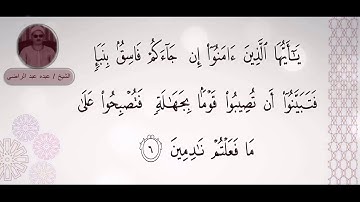 يَـٰٓأَيُّهَا ٱلَّذِينَ ءَامَنُوٓا۟ إِن جَآءَكُمْ فَاسِقٌۢ بِنَبَإٍ
فَتَبَيَّنُوٓا۟ أَن تُصِيبُوا۟ قَوْمًۢا بِجَهَـٰلَةٍ فَتُصْبِحُوا۟ عَلَىٰ
مَا فَعَلْتُمْ نَـٰدِمِينَ ٦
الشيخ / عبده عبد الراضي